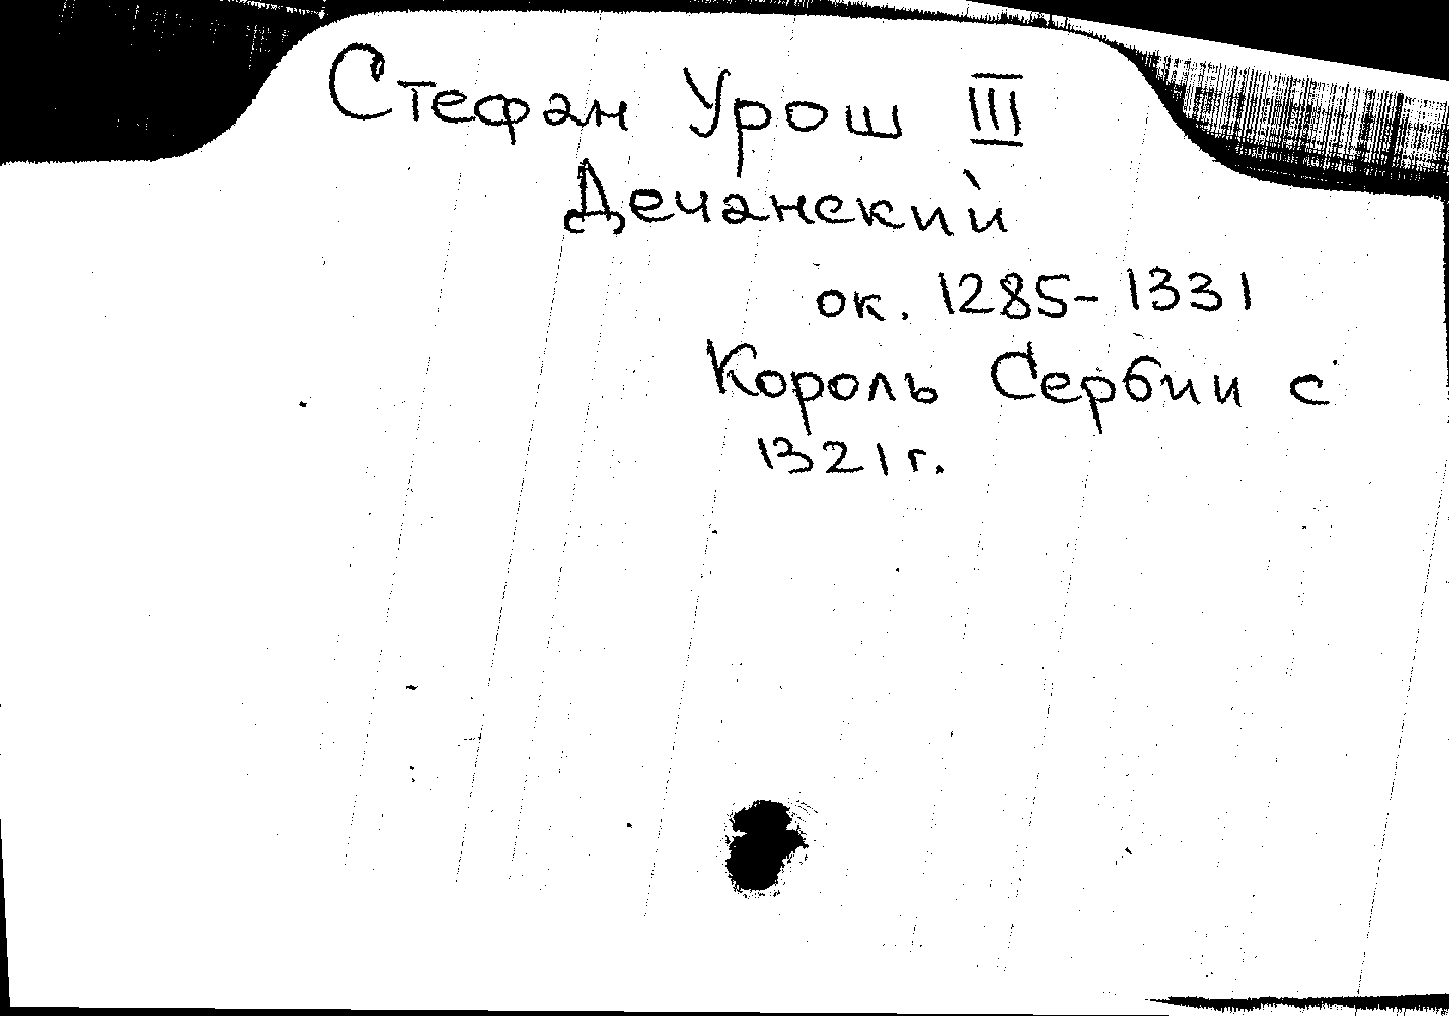 Стефан Урош III
Дечанский
ок. 1285-1331
Король Сербии с
1321 г.